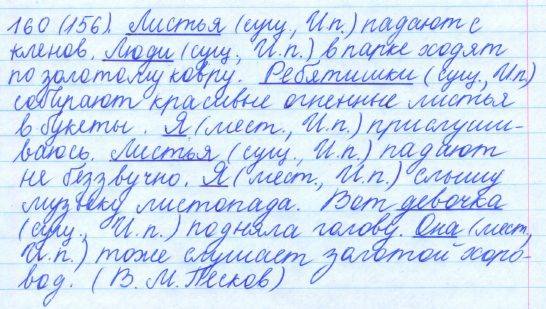 160 (156). Листья (сущ., И.п.) падают с
кленов. Люди (сущ., И.п.) в парке ходят
по золотому ковру. Ребятишки (сущ., И.п)
собирают красивые огненные листья
в букеты. Я (мест., И.п.) прислуши-
ваюсь. Листья (сущ., И.п.) падают
не беззвучно. Я (мест., И.п.) слышу
музыку листопада. Вот девочка
(сущ., И.п.) подняла голову. Она (мест.,
И.п.) тоже слушает золотой хоро-
вод. (В. М. Песков)